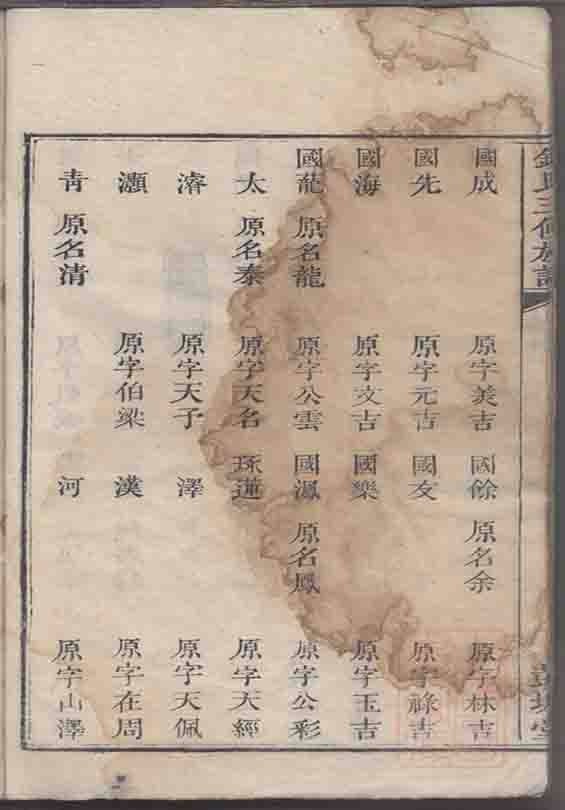 國成 原字羙吉 國餘 原名余 原字林吉
國先 原字元吉 國友 原字祿吉
國海 原字文吉 國樂 原字玉吉
國龍 原名龍 原字公雲 國鳳 原名鳳 原字公彩
太 原名泰 原字天名 琢蓮 原字大經
濬 原字天予 澤 原字天佩
灝 原字伯梁 漢 原字在周
青 原名清 河 原字山澤